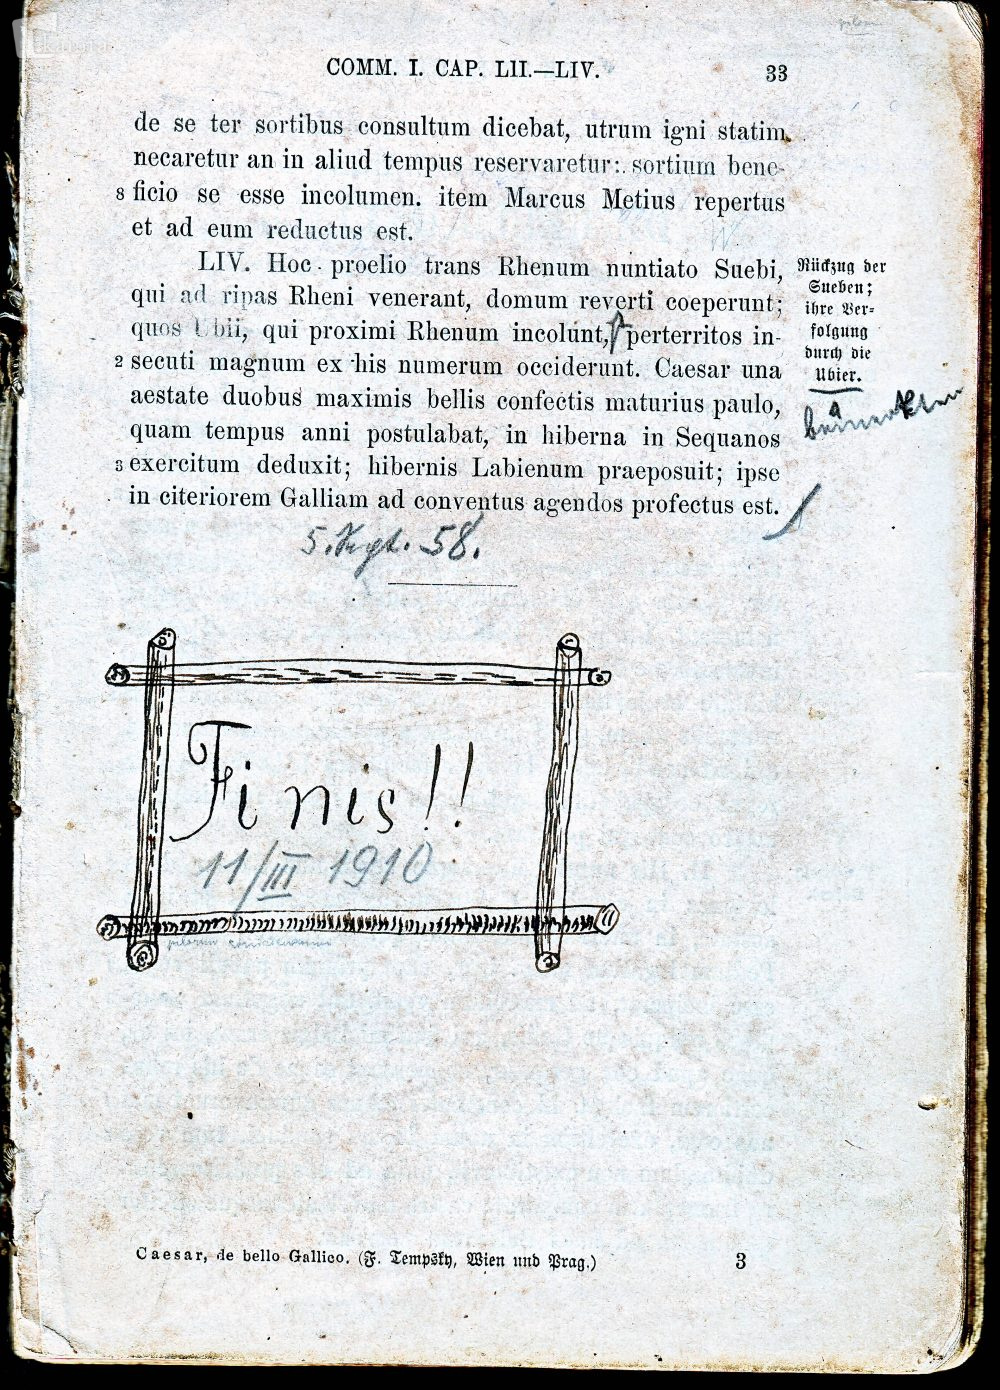 COMM. I. CAP. LII.—LIV.
33
de se ter sortibus consultum dicebat, utrum igni statim
necaretur an in aliud tempus reservaretur: sortium bene-
8 ficio se esse incolumen. item Marcus Metius repertus
et ad eum reductus est.
LIV. Hoc proelio trans Rhenum nuntiato Suebi,
qui ad ripas Rheni venerant, domum reverti coeperunt;
quos Ubii, qui proximi Rhenum incolunt, perterritos in-
2 secuti magnum ex his numerum occiderunt. Caesar una
aestate duobus maximis bellis confectis maturius paulo,
quam tempus anni postulabat, in hiberna in Sequanos
3 exercitum deduxit; hibernis Labienum praeposuit; ipse
in citeriorem Galliam ad conventus agendos profectus est.
Rückzug der
Sueben;
ihre Ver-
folgung
durch die
Ubier.
5. Sept. 58.
Finis!!
11/III 1910
Caesar, de bello Gallico. (F. Tempsky, Wien und Prag.)
3